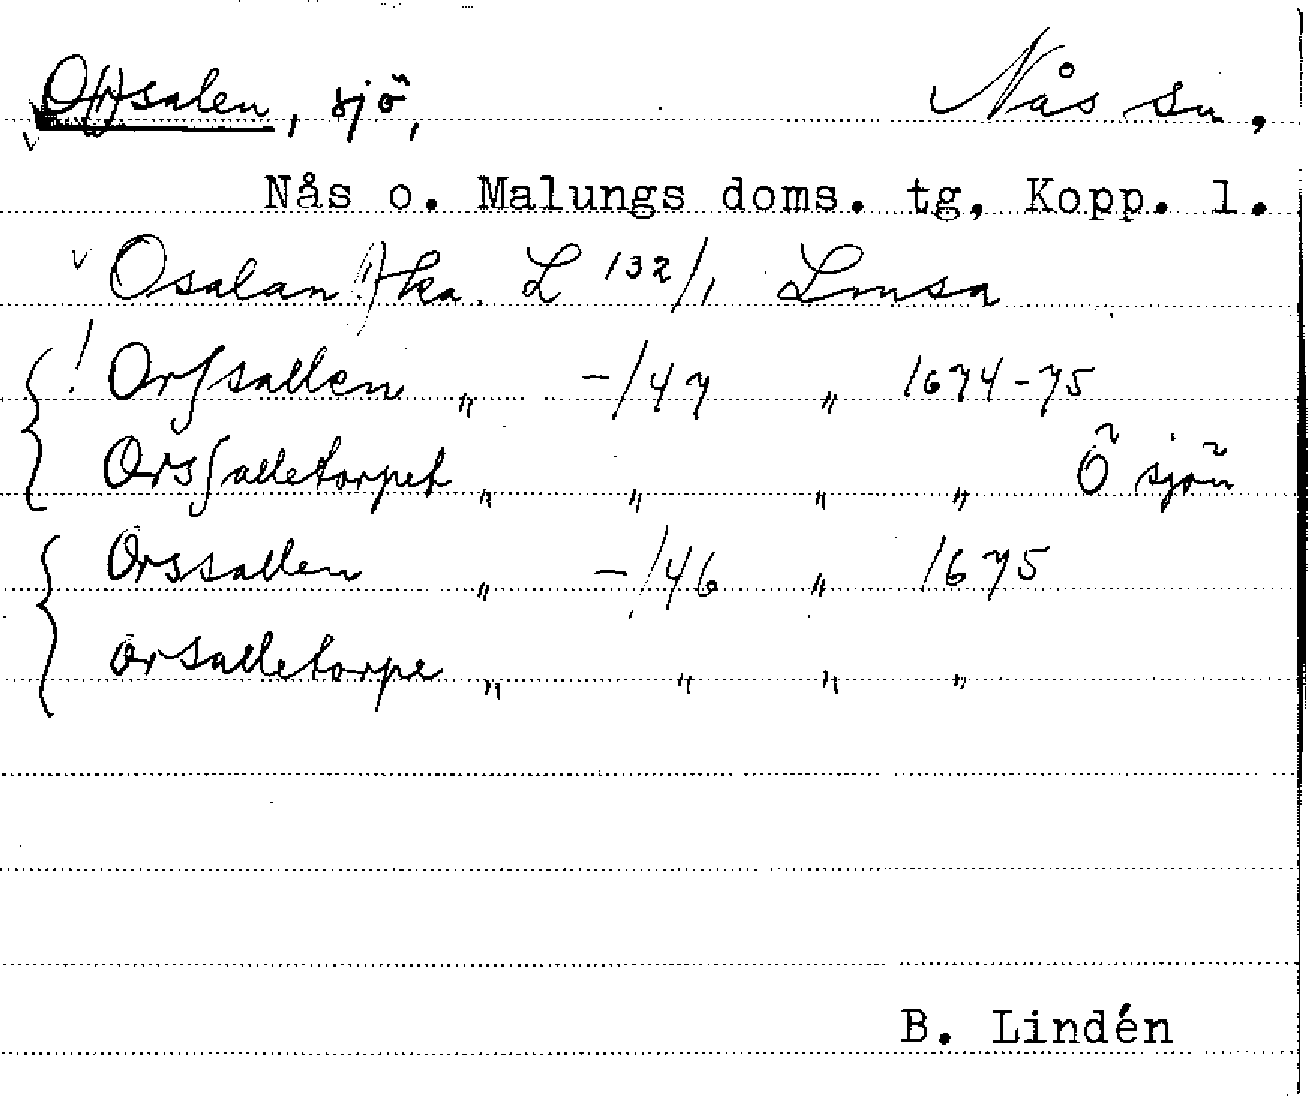 O(r)salen, sjö, Nås sn,
Nås o. Malungs doms. tg, Kopp. l.
v Osalan (!) ka. L 132/1 Lmsa
! Orssallen " -/47 " 1674-75
Orssalletorpet " " " " Ö sjön
Orssallen " -/46 " 1675
orsalletorpe " " " "
B. Lindén